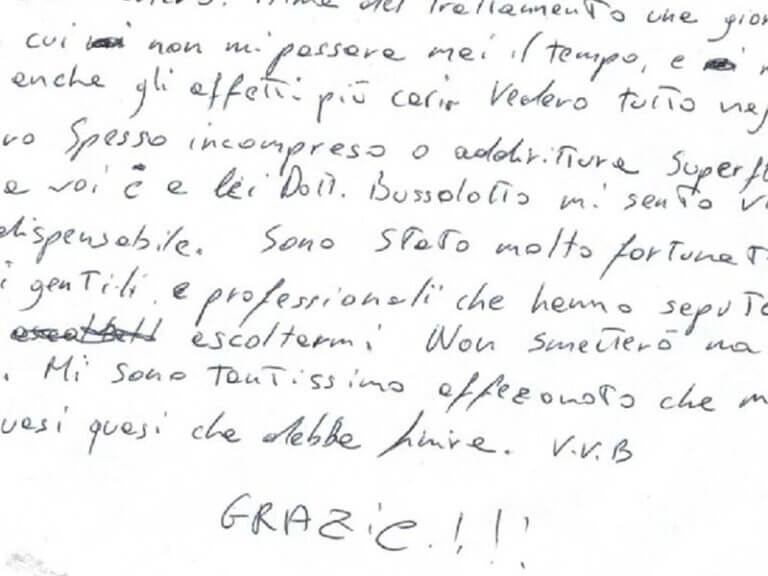 Prima del Trattamento che gior
cui non mi passava mai il tempo, e
anche gli affetti più cari. Vedevo tutto neg
vo Spesso incompreso o addirittura Superf
a voi e a lei Dott. Bussolotto mi sento v
dispensabile. Sono stato molto fortunat
i gentili e professionali che hanno saputo
ascoltarmi Non smetterò ma
. Mi sono tantissimo affezonato che m
uasi quasi che debba finire. V.V.B
GRAZIE.!!!